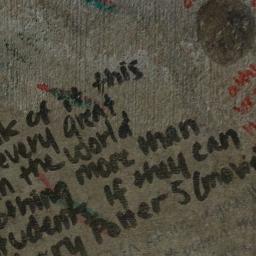 k of it this
every great
n the world
othing more than
tudents If they can
rry Potter 5 (movi